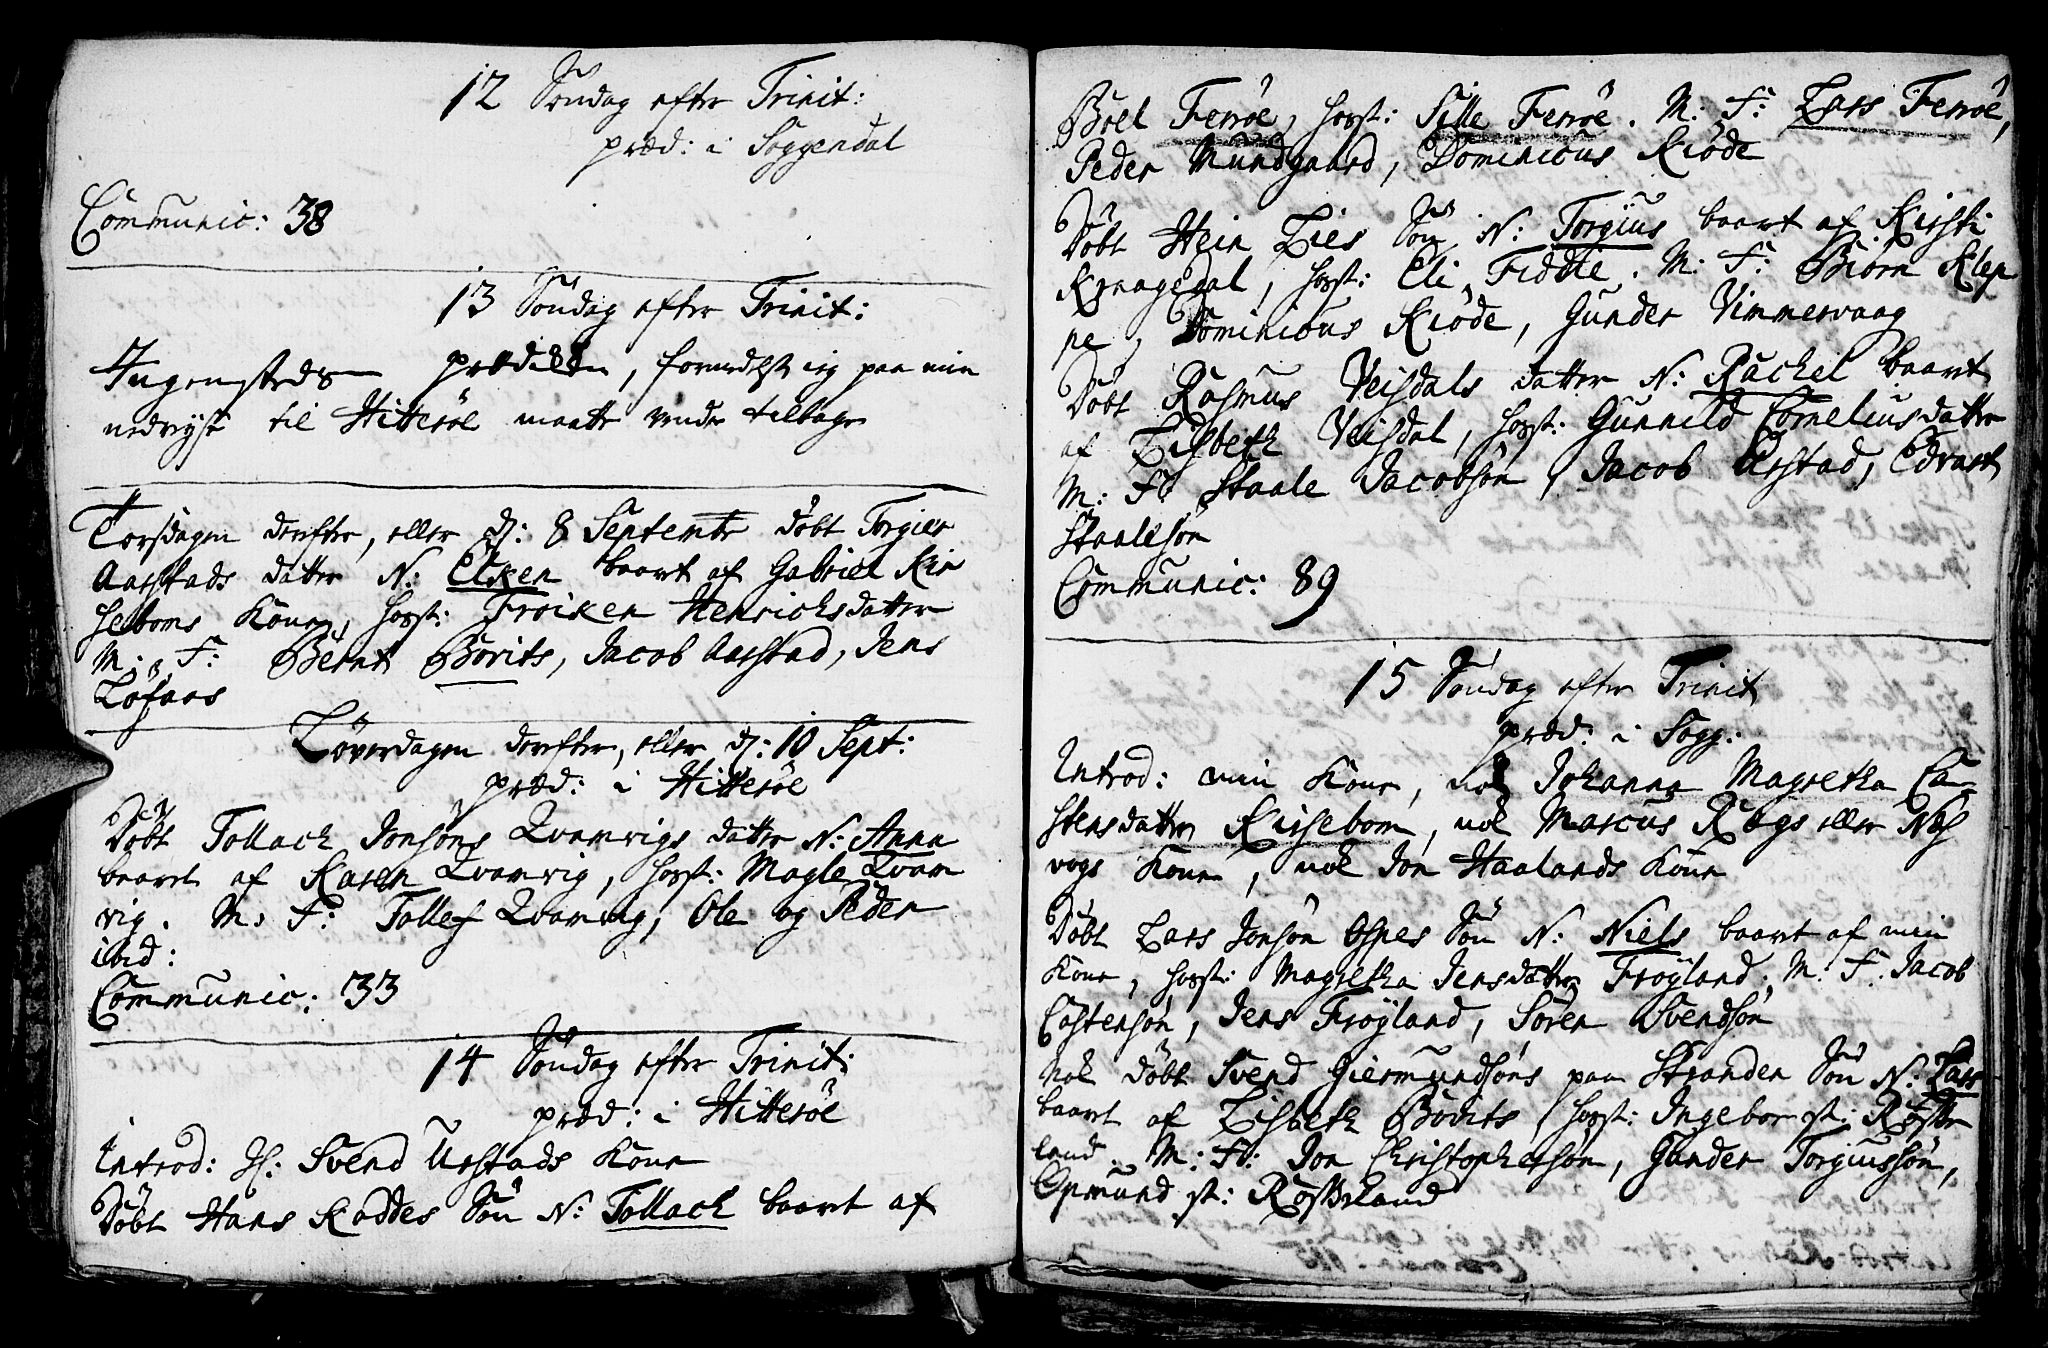 12 Söndag efter Trinit:
præd: i Soggendal
Communic: 38
13 Söndag efter Trinit:
Ingensteds prædiken, formedelst ieg paa min
udrejse til Hitteröe maatte vende tilbage
Torsdagen derefter, eller d: 8 Septembr döbt Torgier
Aarstads datter N: Elken baaret af Gabriel Kir
seboms Kone, hosst: Froiken Henrichsdatter
M: F: Bernt Börits, Jacob Aarstad, Jens
Löfaas
Löverdagen derefter, eller d: 10 Sept:
præd: i Hitteröe
Döbt Tollach Jonsöns Qvamvigs datter N: Anna
baaret af Karen Qvamvig, hosst: Magle Qvam
vig. M: F: Tollef Qvamvig, Ole og Peder
ibid:
Communic: 33
14 Söndag efter Trinit:
præd: i Hitteröe
Introd: Svend Urstads Kone
Döbt Hans Raddes Sön N: Tollach baaret af
Boel Ferröe, hosst: Sille Ferröe. M: F: Lars Ferröe,
Peder Mundgaard, Dominicus Kiöde
Döbt Hein Lies Sön N: Torgius baaret af Kirsti
Kraagedal, hosst: Eli Fidde. M: F: Biörn Klep
pe, Dominicus Kiöde, Gunder Vimmervaag
Döbt Rasmus Veisdals datter N: Rachel baaret
af Lisbeth Veisdal, hosst: Gunnild Corneliusdatter
M: F: Staale Jacobsön, Jacob Aastad, Edvart
Staalesön
Communic: 89
15 Söndag efter Trinit
præd: i Sogg:
Introd: min Kone, nol Johanna Magretha Ca-
stensdatter Kirsebom, nok Marcus Rægs eller
vogs Kone, nok Jon Haalands Kone
Döbt Lars Jonsön Ospes Sön N: Niels baaret af min
Kone, hosst: Magretha Jensdatter Fröyland. M. F. Jacob
Castensön, Jens Fröyland, Sören Svendsön
Nok döbt Svend Giermundsöns paa Stranden Sön N: Lars
baaret af Lisbeth Bödits, hosst: Ingebor st: Röster
land. M: F: Jon Christophersön, Gunder Torgiussön,
Opmund st: Rösterland